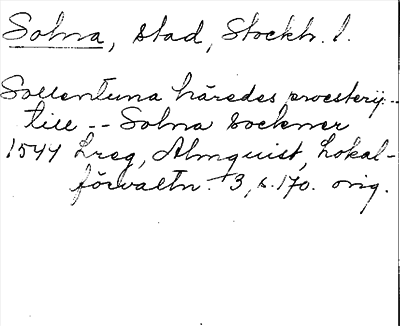 Solna, stad, Stockh. l.
Sollentuna häredes
till -- Solna sockner
1544 Lreg, Almquist, Lokal-
förvaltn. 3, s. 170. orig.